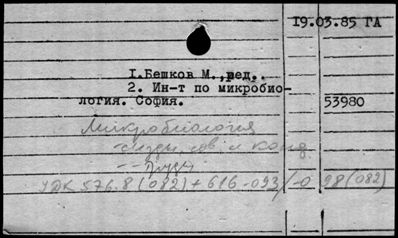 19.03.85 ГА
I.Бешков М.,ред..
2. Ин-т по микробио-
логия. София.
53980
Микробиология
УДК 576.8(082)+616-093/-098(082)